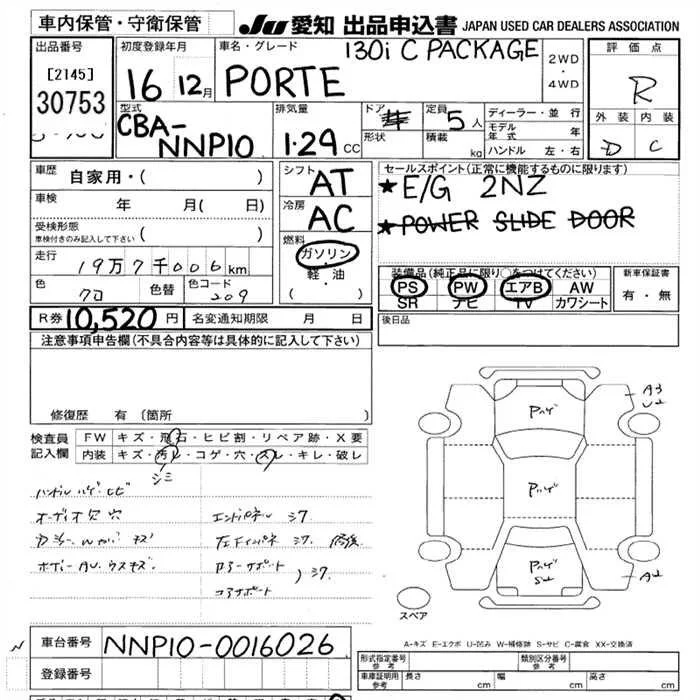 車内保管・守衛保管
JU 愛知 出品申込書 JAPAN USED CAR DEALERS ASSOCIATION
出品番号
[2145]
30753
初度登録年月
16 12月
車名・グレード
130i C PACKAGE
PORTE
2WD
・
4WD
評価点
R
外装 内装
D C
型式
CBA-
NNP10
排気量
1.29 CC
ドア
形状
定員 5 人
積載 kg
ディーラー・並行
モデル年式 年
ハンドル 左・右
車歴 自家用・( )
車検 年 月( 日)
受検形態
車検付きのみ記入して下さい ( )
走行 19万7千006km
色 クロ 色替 色コード 209
シフト AT
冷房 AC
燃料
ガソリン
・
軽・油
( )
セールスポイント(正常に機能するものに限ります)
★E/G 2NZ
★POWER SLIDE DOOR
装備品(純正品に限り○をつけてください)
PS PW エアB AW
SR ナビ TV カワシート
新車保証書
有・無
R券 10,520円 名変通知期限 月 日
後日品
注意事項申告欄(不具合内容等は具体的に記入して下さい)
修復歴 有(箇所 )
検査員
記入欄
FW キズ・飛石・ヒビ割・リペア跡・X要
内装 キズ・汚レ・コゲ・穴・スレ・キレ・破レ
シミ
オーディオ欠 穴
エンドパネル
A3
U2
Pハゲ
Pハゲ
Pハゲ
A2
スペア
A-キズ E-エクボ U-凹み W-補修跡 S-サビ C-腐食 XX-交換済
車台番号 NNP10-0016026
登録番号
形式指定番号
参考
類別区分番号
参考
車庫証明用
参考
長さ cm 幅 cm 高さ cm